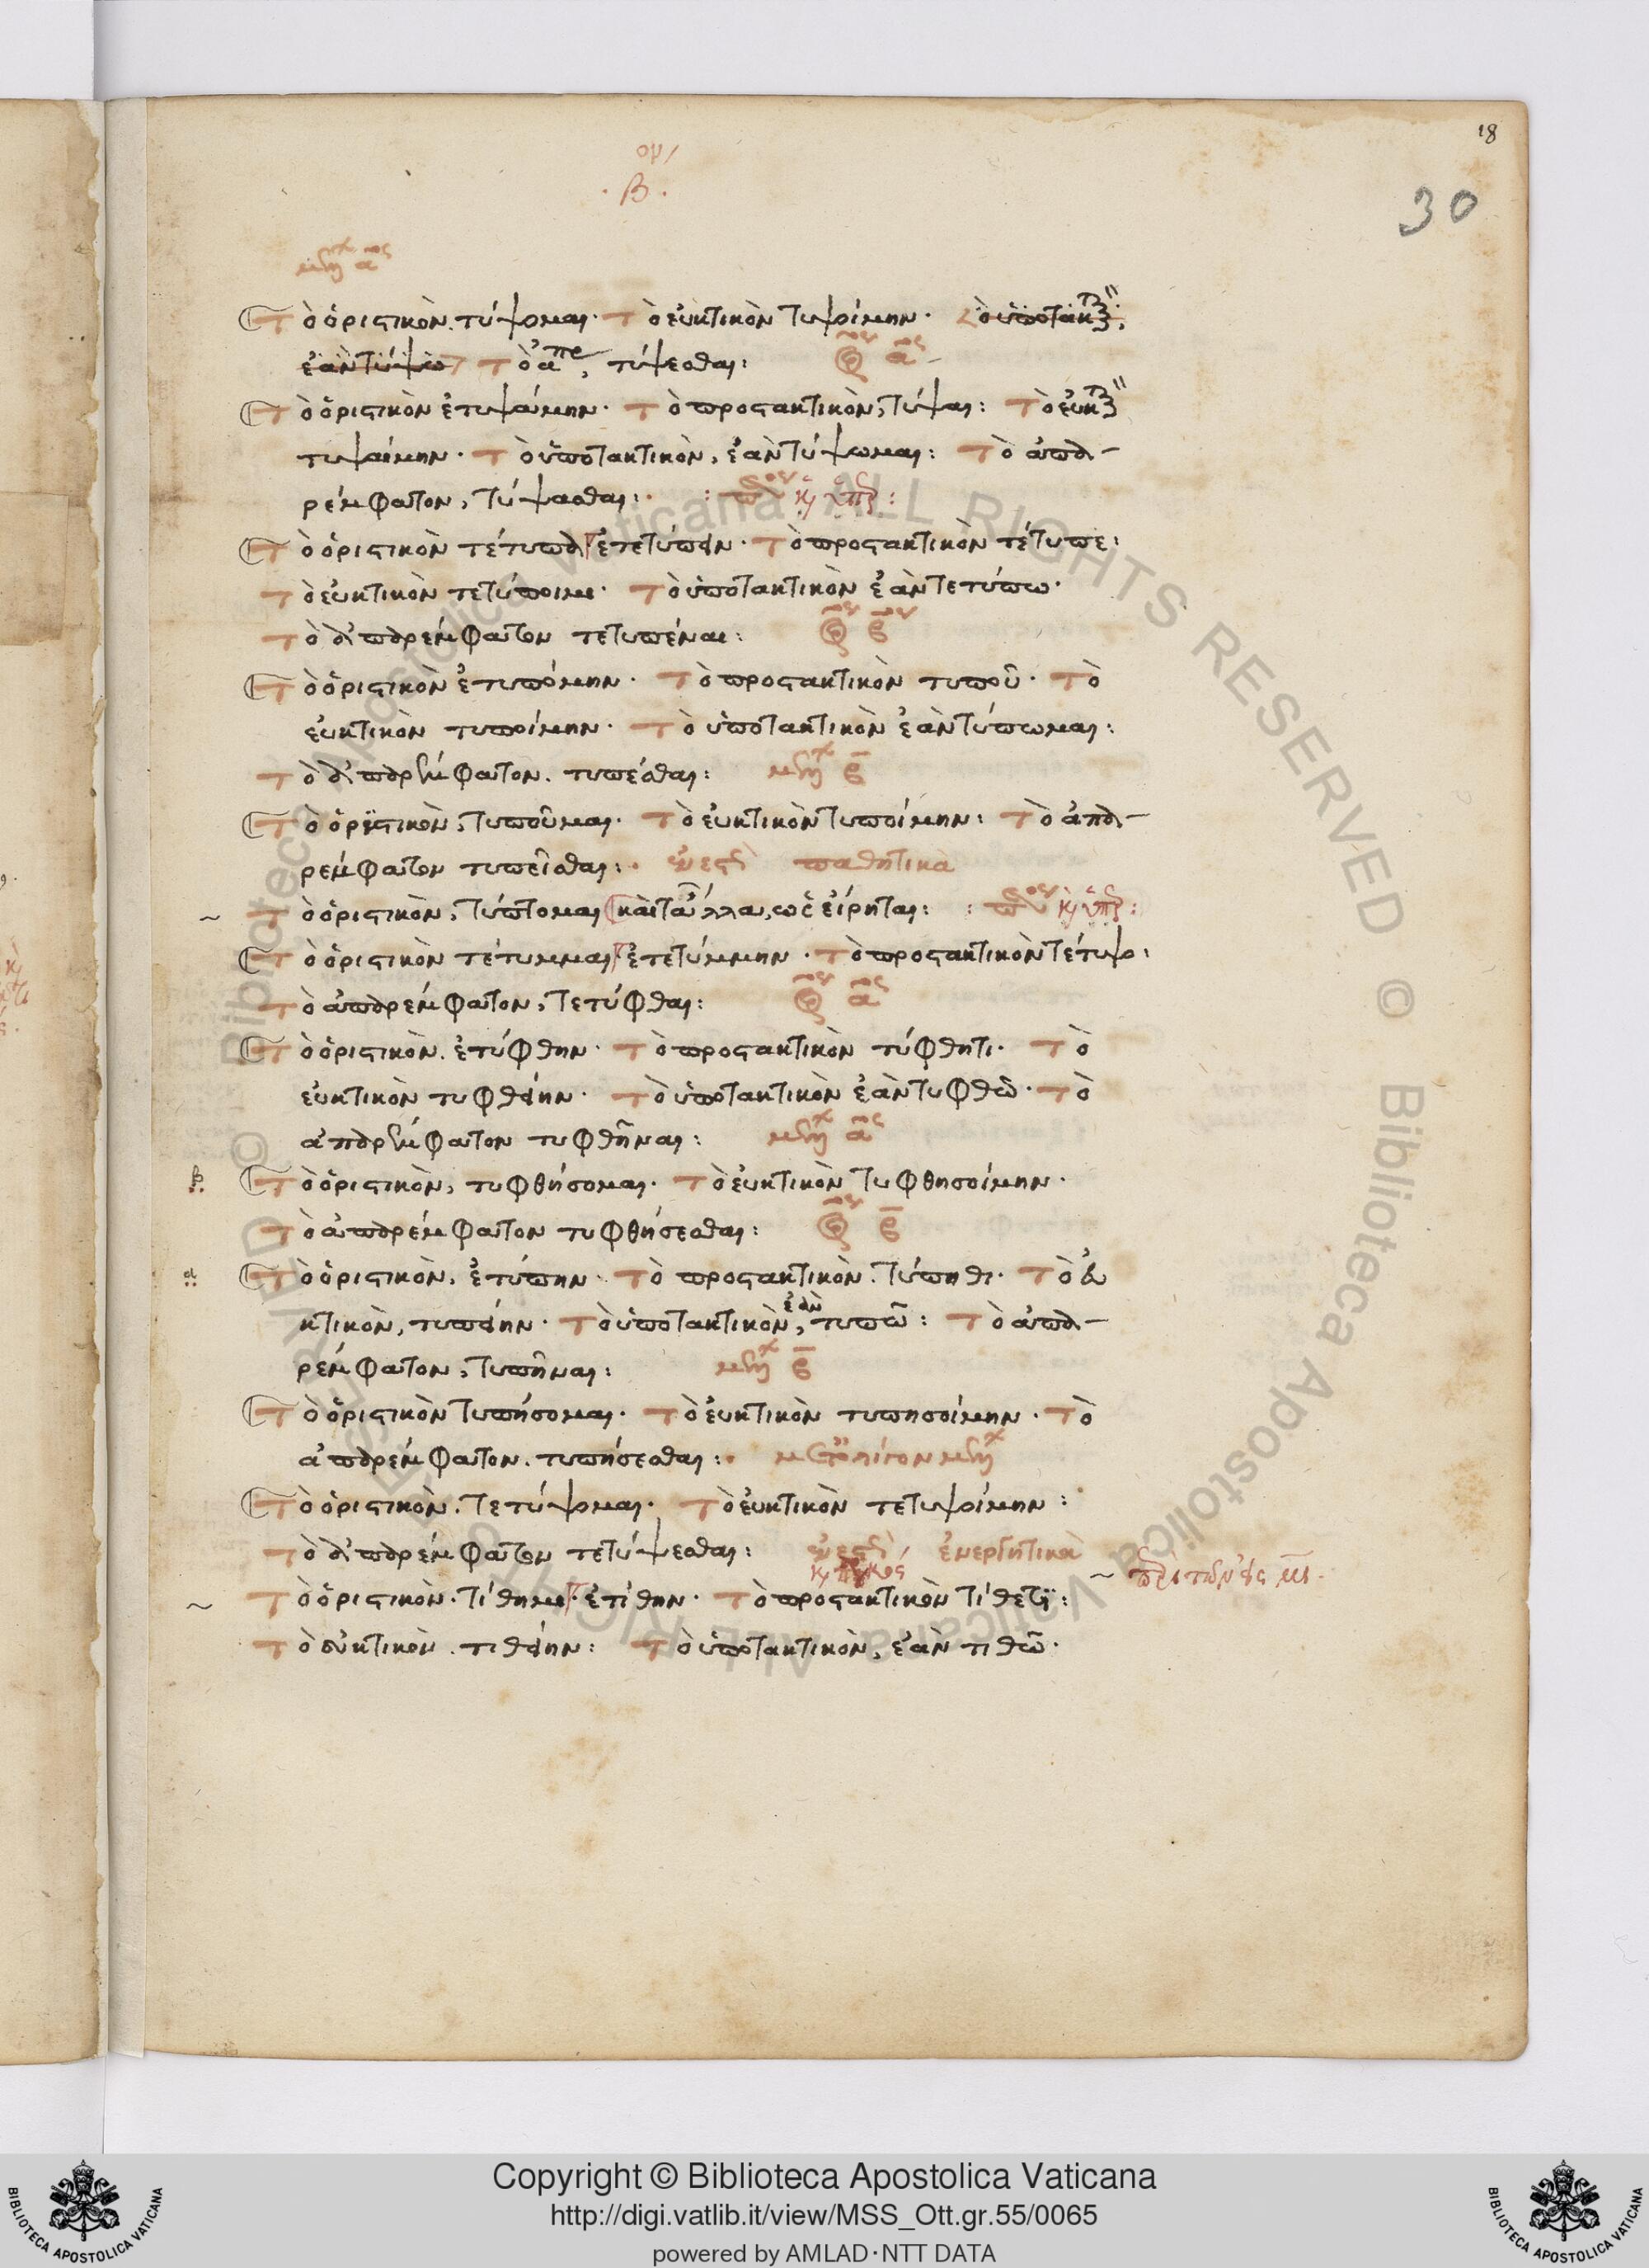 18
30
ομ/
·β·
μέλλ αος
Τὸ ὁριστικὸν τύψομαι· Τὸ εὐκτικὸν τυψοίμην· Τὸ ὑποτακτ
ἐὰν τύψω Τὸ ἀπε, τύψεσθαι: αος
Τὸ ὁριστικὸν ἐτυψάμην· Τὸ προστακτικὸν, τύψαι: Τὸ εὐκτ
τυψαίμην· Τὸ ὑποτακτικὸν, ἐὰν τύψωμαι: Τὸ ἀπα-
ρέμφατον, τύψασθαι:
Τὸ ὁριστικὸν τέτυπα ἐτετύπειν· Τὸ προστακτικὸν τέτυπε:
Τὸ εὐκτικὸν τετύποιμι· Τὸ ὑποτακτικὸν ἐὰν τετύπω·
Τὸ ἀπαρέμφατον τετυπέναι:
Τὸ ὁριστικὸν ἐτυπόμην· Τὸ προστακτικὸν τυποῦ· Τὸ
εὐκτικὸν τυποίμην· Τὸ ὑποτακτικὸν ἐὰν τύπωμαι:
Τὸ ἀπαρέμφατον. τυπέσθαι: μέλλ β
Τὸ ὁριστικὸν, τυποῦμαι· Τὸ εὐκτικὸν τυποίμην: Τὸ ἀπα-
ρέμφατον τυπεῖσθαι: παθητικὰ
~ Τὸ ὁριστικὸν, τύπτομαι καὶ τἄλλα, ὡς εἴρηται:
Τὸ ὁριστικὸν τέτυμμαι ἐτετύμμην· Τὸ προστακτικὸν τέτυψο:
Τὸ ἀπαρέμφατον, τετύφθαι: αος
Τὸ ὁριστικὸν. ἐτύφθην· Τὸ προστακτικὸν τύφθητι· Τὸ
εὐκτικὸν τυφθείην· Τὸ ὑποτακτικὸν ἐὰν τυφθῶ· Τὸ
ἀπαρέμφατον τυφθῆναι: μέλλ αος
β Τὸ ὁριστικὸν, τυφθήσομαι· Τὸ εὐκτικὸν τυφθησοίμην·
Τὸ ἀπαρέμφατον τυφθήσεσθαι: β
α Τὸ ὁριστικὸν. ἐτύπην· Τὸ προστακτικὸν. τύπηθι· Τὸ εὐ
κτικὸν, τυπείην· Τὸ ὑποτακτικὸν, ἐὰν τυπῶ: Τὸ ἀπα-
ρέμφατον, τυπῆναι: μέλλ β
Τὸ ὁριστικὸν τυπήσομαι· Τὸ εὐκτικὸν τυπησοίμην· Τὸ
ἀπαρέμφατον. τυπήσεσθαι: μετ' ὀλίγον μέλλ
Τὸ ὁριστικὸν. τετύψομαι· Τὸ εὐκτικὸν τετυψοίμην:
Τὸ ἀπαρέμφατον τετύψεσθαι: ἐνεργητικὰ
~ Τὸ ὁριστικὸν· τίθημι· ἐτίθην· Τὸ προστακτικὸν τίθετι: ~ περὶ τῶν εἰς μι·
Τὸ εὐκτικὸν. τιθείην: Τὸ ὑποτακτικὸν, ἐὰν τιθῶ·
Copyright © Biblioteca Apostolica Vaticana
http://digi.vatlib.it/view/MSS_Ott.gr.55/0065
powered by AMLAD·NTT DATA